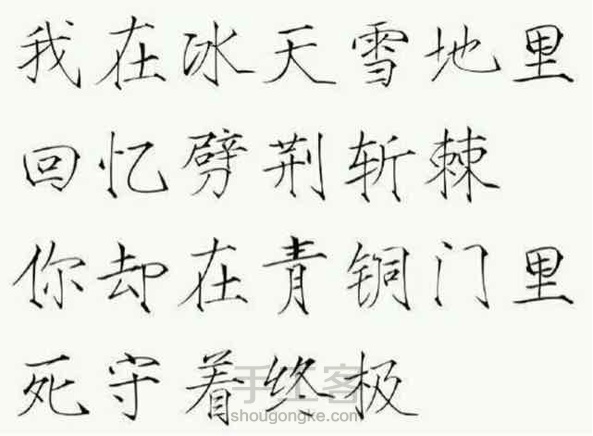 我在冰天雪地里
回忆劈荆斩棘
你却在青铜门里
死守着终极
手工客
shougongke.com